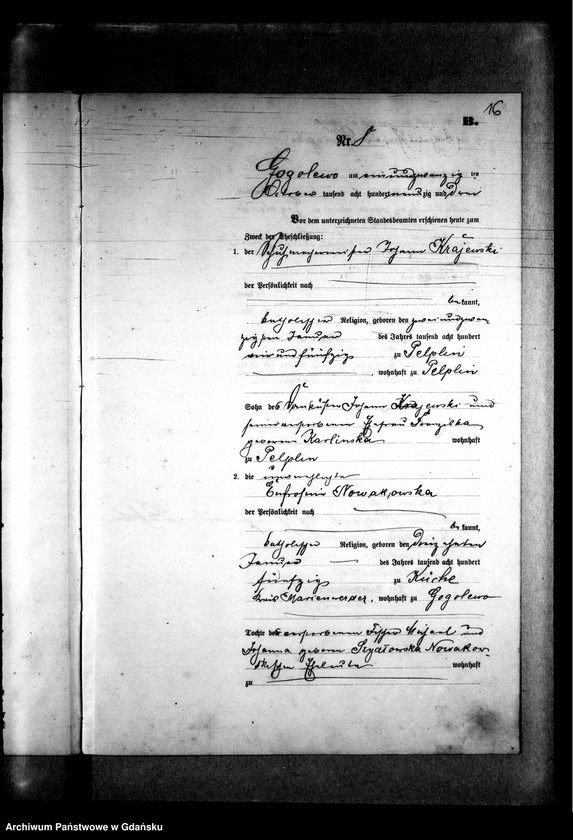 16
B.
Nr. 8
Gogolewo am einundzwanzig ten
October tausend acht hundert neunzig und drei
Vor dem unterzeichneten Standesbeamten erschienen heute zum
Zweck der Eheschließung:
1. der Schuhmachermeister Johann Krajewski
der Persönlichkeit nach
bekannt,
katholischer Religion, geboren den zweiundzwan
zigsten Januar des Jahres tausend acht hundert
vier und fünfzig zu Pelplin
, wohnhaft zu Pelplin
Sohn des Johann Krajewski und
seiner verstorbenen Ehefrau
geborene Karlinska wohnhaft
zu Pelplin
2. die unverehelichte
Eufrosine Nowakowska
der Persönlichkeit nach
bekannt,
katholischer Religion, geboren den
Januar des Jahres tausend acht hundert
fünfzig zu Küche
Kreis Marienwerder, wohnhaft zu Gogolewo
Tochter der verstorbenen Fischer Michael und
Johanna geborene Nowakow-
skischen Eheleute wohnhaft
zu
Archiwum Państwowe w Gdańsku